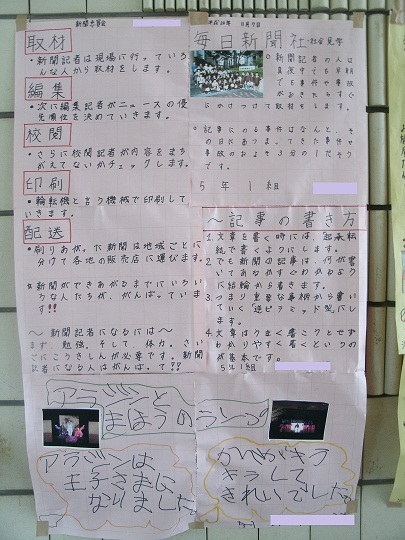 新聞委員会
取材
・新聞記者は現場に行っていろ
んな人から取材をします。
編集
・次に編集記者がニュースの優
先順位を決めていきます。
校閲
・さらに校閲記者が内容をまち
がえてないかチェックします。
印刷
・輪転機と言う機械で印刷して
いきます。
配送
・刷りあがった新聞は地域ごとに
分けて各地の販売店に運びます。
※新聞ができあがるまでにいろい
ろな人たちが、がんばっていま
す!!
〜新聞記者になるには〜
まず、勉強。そして、体力。さい
ごにこうきしんが必要です。新聞
記者になる人はがんばって!!
毎日新聞社 社会見学
記事にのる事件はなんと、そ
の日にあつまってきた事件や
事故のおよそ3分の1だそう
です。
5年1組
〜記事の書き方
1.文章を書く時には、起承転
結で書くようにします。
2.でも新聞の記事は、何が書
いてあるかすぐわかるよう
に結論から書きます。
3.つまり重要な事柄から書い
ていく“逆ピラミッド型”にし
ます。
4.文章はうまく書こうとせず
わかりやすく書くというの
が基本です。
5年1組
アラジンと
まほうのランプ
アラジンは
王子さまに
なりました。
かいめがキラ
キラして
きれいでした。